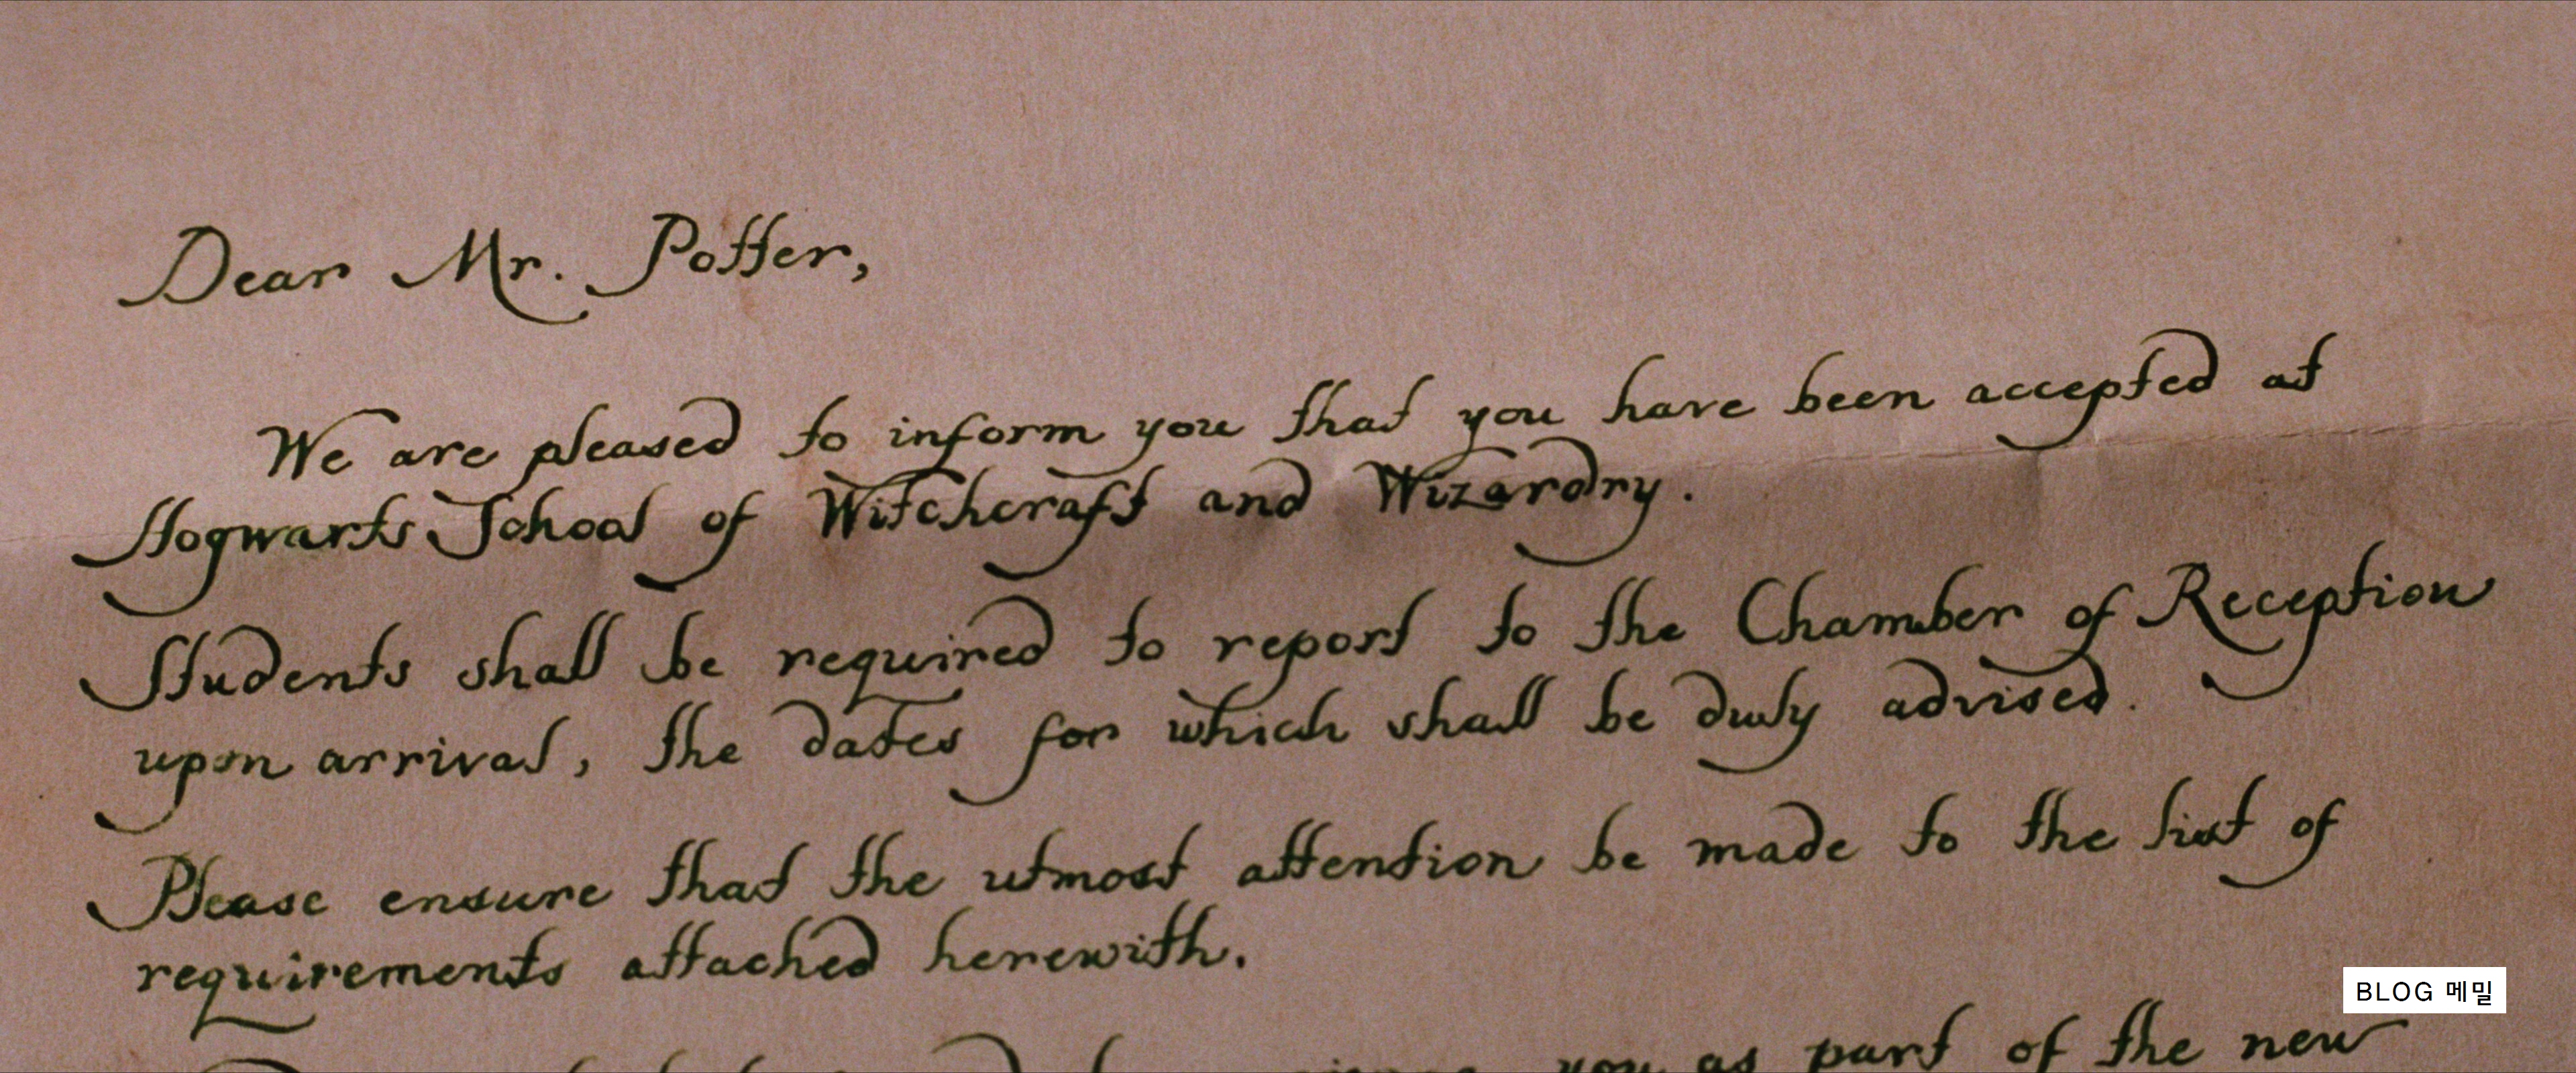 Dear Mr. Potter,
We are pleased to inform you that you have been accepted at
Hogwarts School of Witchcraft and Wizardry.
Students shall be required to report to the Chamber of Reception
upon arrival, the dates for which shall be duly advised.
Please ensure that the utmost attention be made to the list of
requirements attached herewith.
BLOG 메밀
you as part of the new